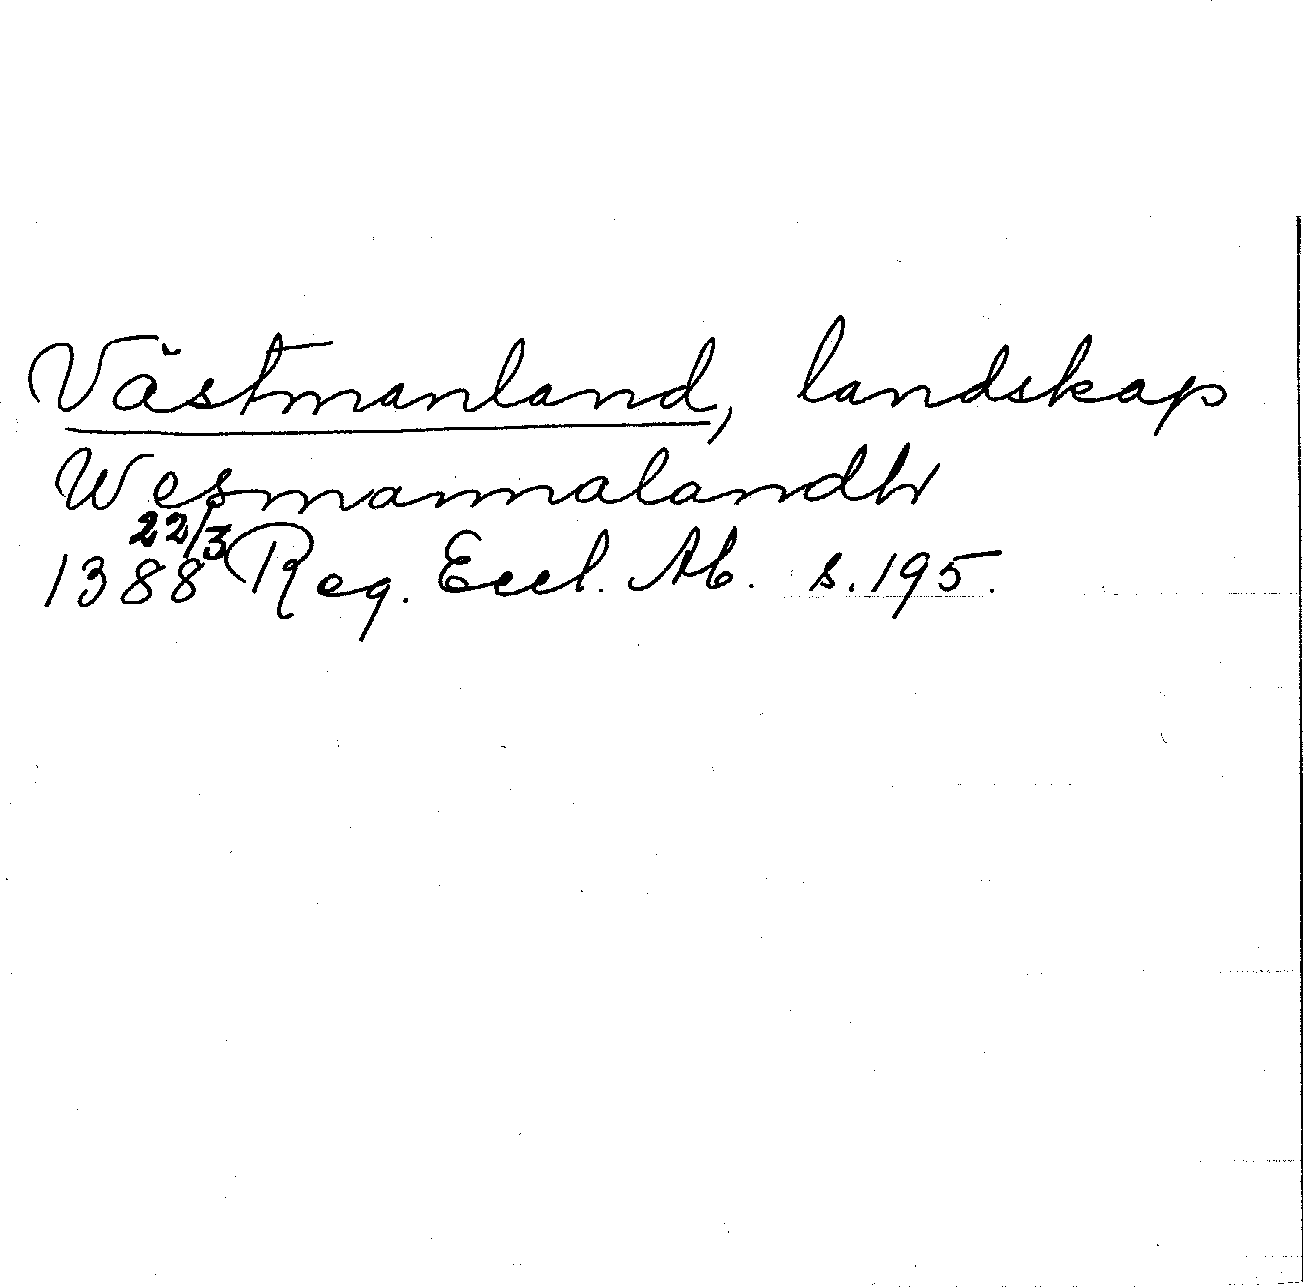 Västmanland, landskap
Wesmannalandh
1388 22/3 Reg. Eccl. Ab. s. 195.